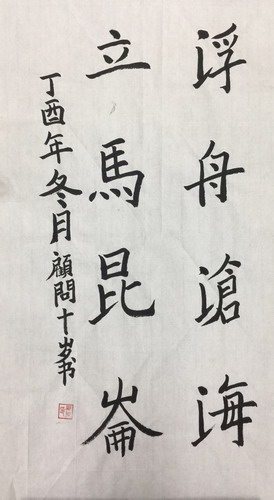 浮舟滄海
立馬昆崙
丁酉年冬月顧問十岁书